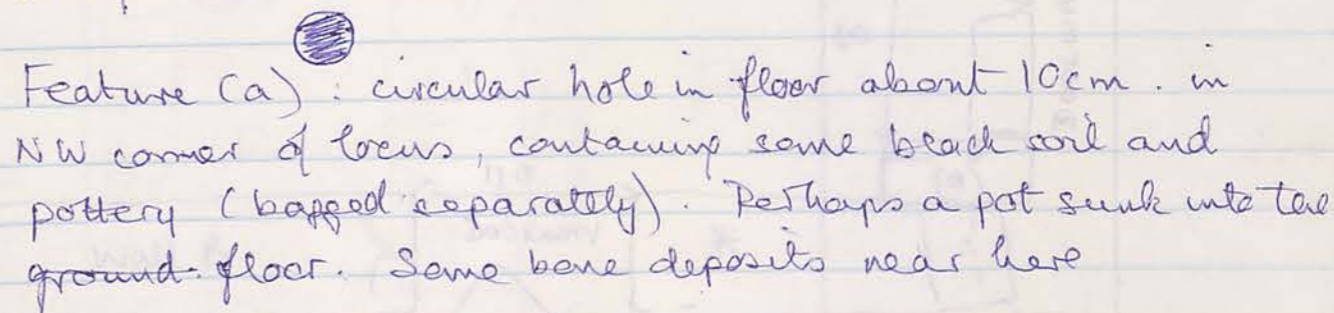 Feature (a) : circular hole in floor about 10cm. in
NW corner of locus, containing some black soil and
pottery (bagged separately). Perhaps a pot sunk into the
ground. floor. Some bone deposits near here